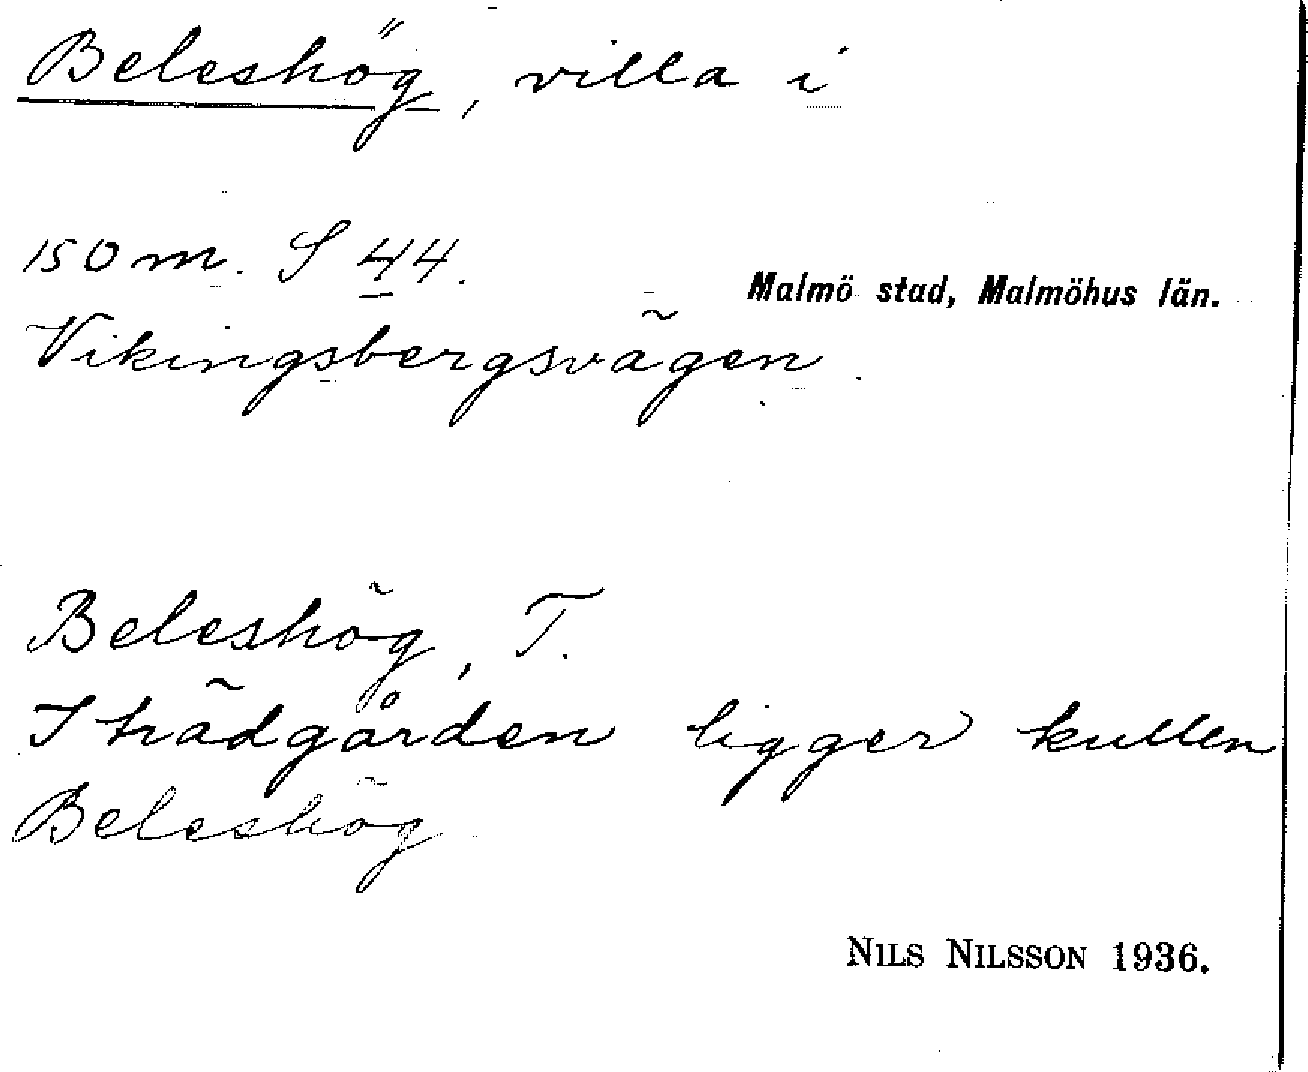 Beleshög, villa i
150 m. S 44.
Malmö stad, Malmöhus län.
Vikingsbergsvägen
Beleshög, T.
I trädgården ligger kullen
Beleshög
NILS NILSSON 1936.